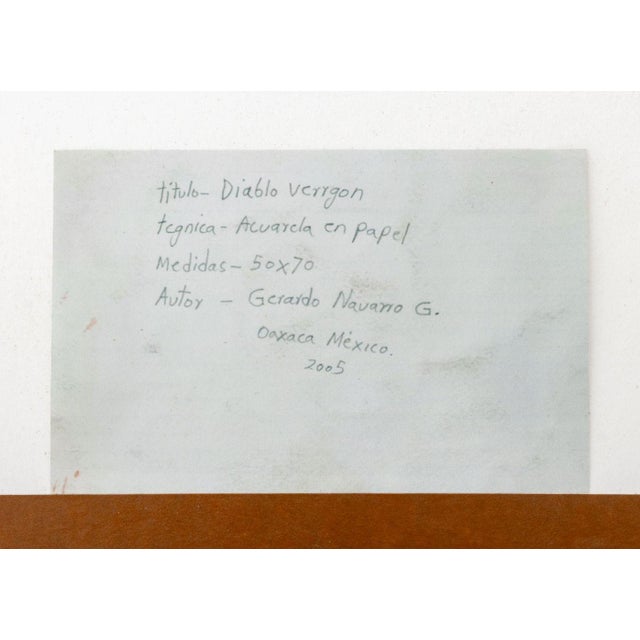 título- Diablo Verrgon
tegnica- Acuarela en papel
Medidas- 50x70
Autor - Gerardo Navarro G.
Oaxaca México.
2005